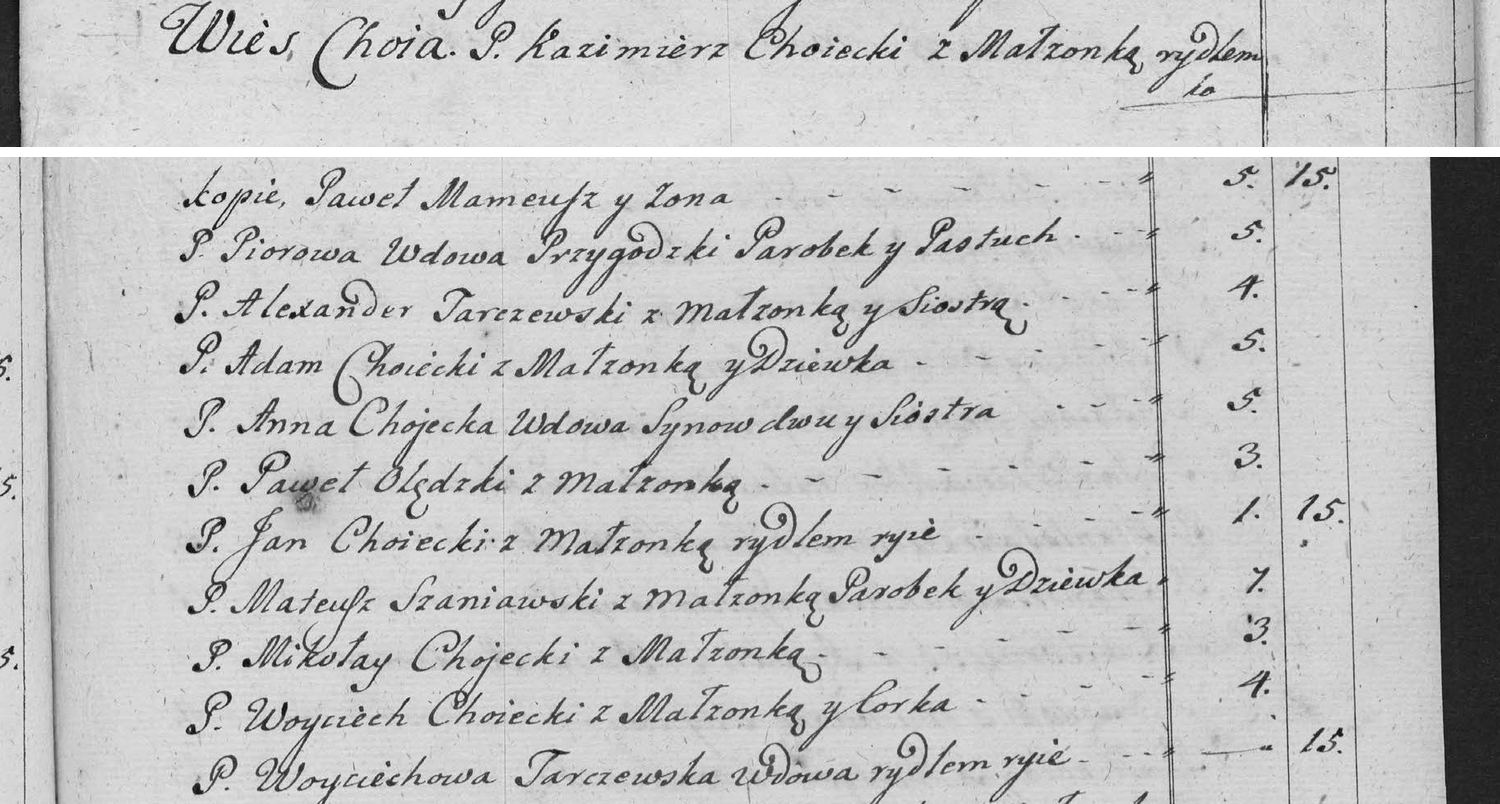 Wies, Choia. P. Kazimierz Choiecki z Małzonką rydlem
ko
kopie, Paweł Mameusz y Zona - - - - - - " 5. 15.
P. Piorowa Wdowa Przygodzki Parobek y Pastuch - - - " 5.
P. Alexander Tarczewski z Małzonką y Siostrą - - - - " 4.
P. Adam Choiecki z Małzonką y Dziewka - - - - - " 5.
P. Anna Chojecka Wdowa Synow dwu y Siostra - - - - " 5.
P. Paweł Olędzki z Małzonką - - - - - - - " 3.
P. Jan Choiecki z Małzonką rydlem ryie - - - - " 1. 15.
P. Mateusz Szaniawski z Małzonką Parobek y Dziewka " 7.
P. Mikołay Chojecki z Małzonką - - - - - - " 3.
P. Woyciech Choiecki z Małzonką y Corka - - - - - " 4.
P. Woyciechowa Tarczewska Wdowa rydlem ryie - - - " — " 15.
5.
15.
5.